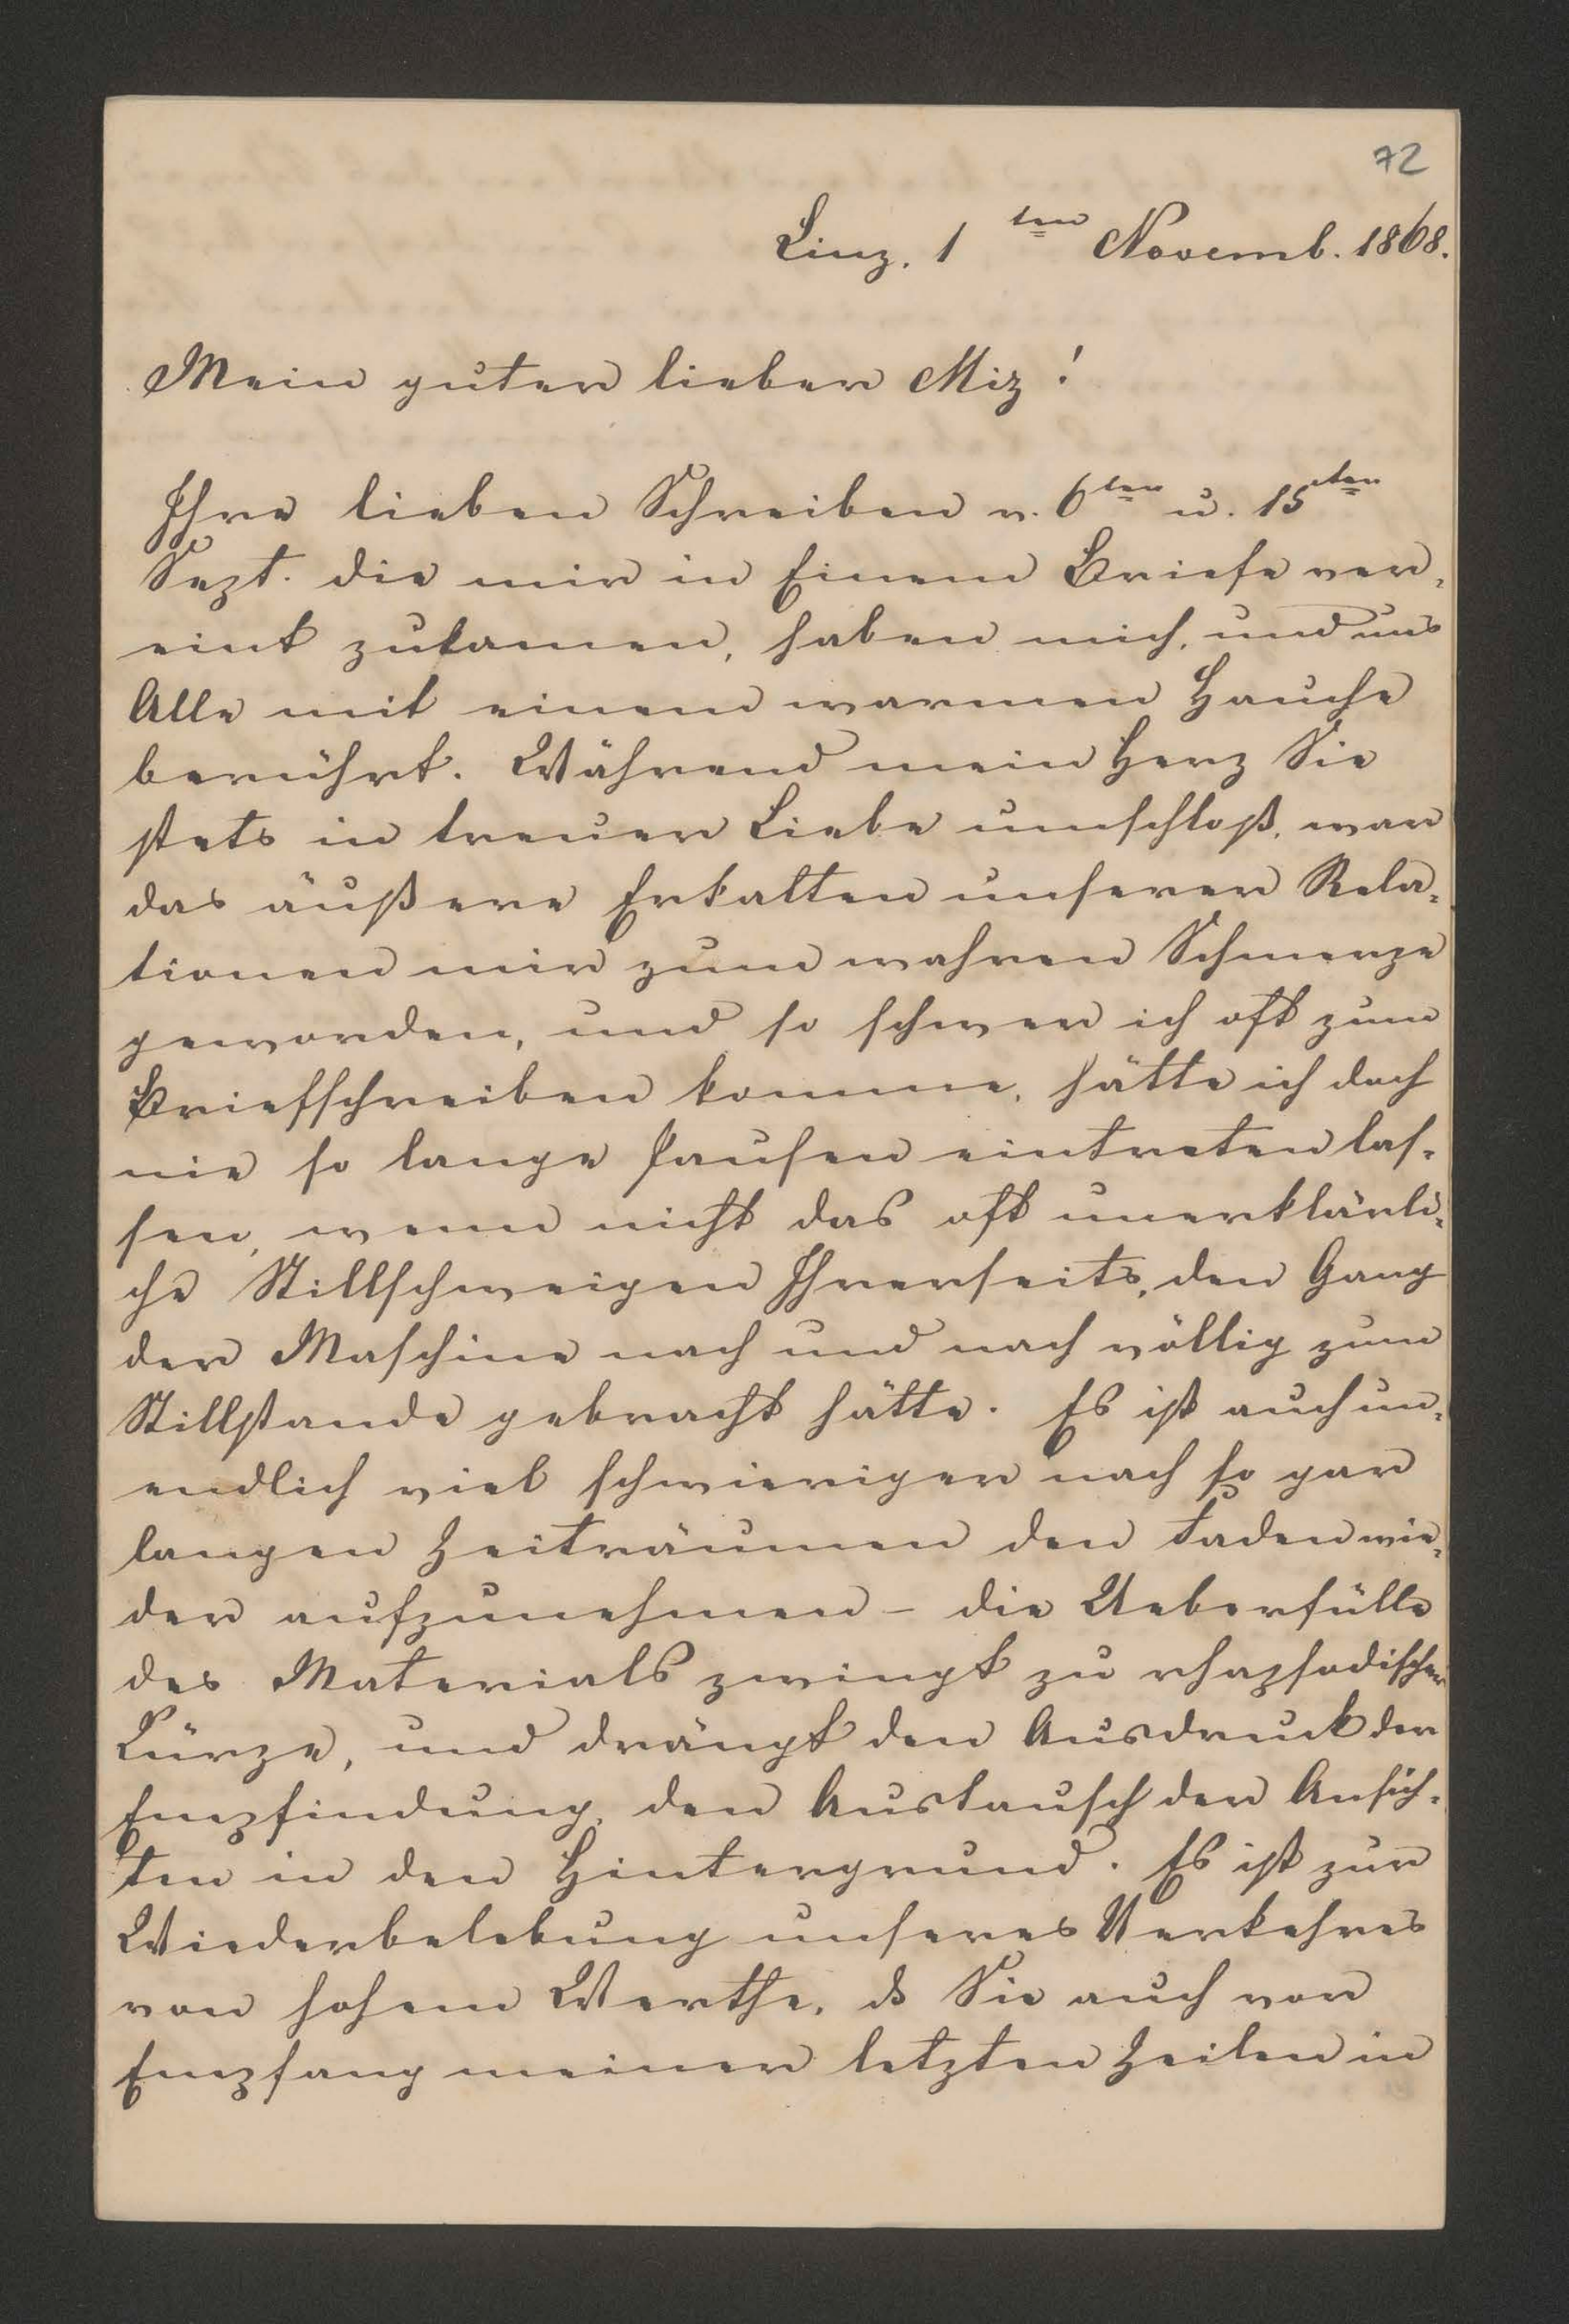 72
Linz. 1ten Novemb. 1868.
Mein guter lieber Miz!
Ihre lieben Schreiben v. 6ten u. 15ten
Sept. die mir in Einem Briefe ver-
eint zukamen, haben mich, und uns
Alle mit einem warmen Hauche
berührt. Während mein Herz Sie
stets in treuer Liebe umschloß, war
das äußere Erkalten unserer Rela-
tionen mir zum wahren Schmerze
geworden, und so schwer ich oft zum
Briefschreiben komme, hätte ich doch
nie so lange Pausen eintreten las-
sen, wenn nicht das oft unerklärli-
che Stillschweigen Ihrerseits, den Gang
der Maschine nach und nach völlig zum
Stillstande gebracht hätte. Es ist auch un-
endlich viel schwieriger nach so gar
langen Zeiträumen den Faden wie-
der aufzunehmen - die Ueberfülle
des Materials zwingt zu rhapsodischer
Kürze, und drängt den Ausdruck der
Empfindung, den Austausch der Ansich-
ten in den Hintergrund. Es ist zur
Wiederbelebung unseres Verkehres
von hohem Werthe, ds Sie auch vor
Empfang meiner letzten Zeilen in